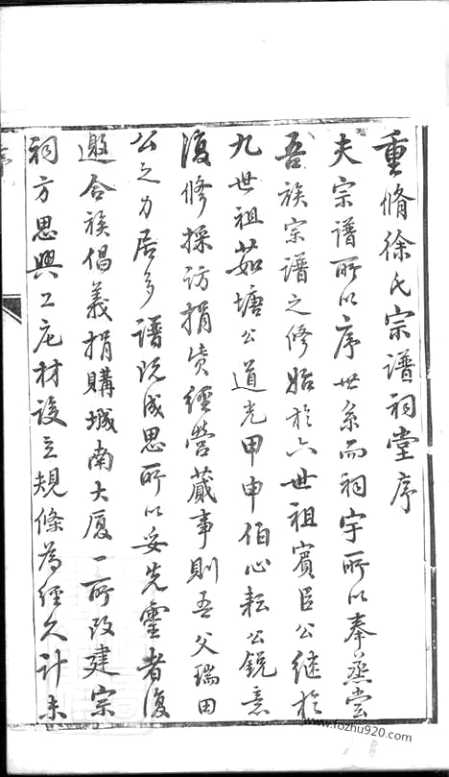 重脩徐氏宗譜祠堂序
夫宗譜所以序世系而祠宇所以奉蒸尝
吾族宗譜之修始於六世祖賓臣公継於
九世祖茹塘公道光甲申伯心耘公鋭意
復修採访捐赀經营蕆事則吾父瑞田
公之力居多譜既成思所以妥先靈者復
邀合族倡義捐購城南大厦一所改建宗
祠方思興工庀材設立規條為經久计未
www.fozhu920.com